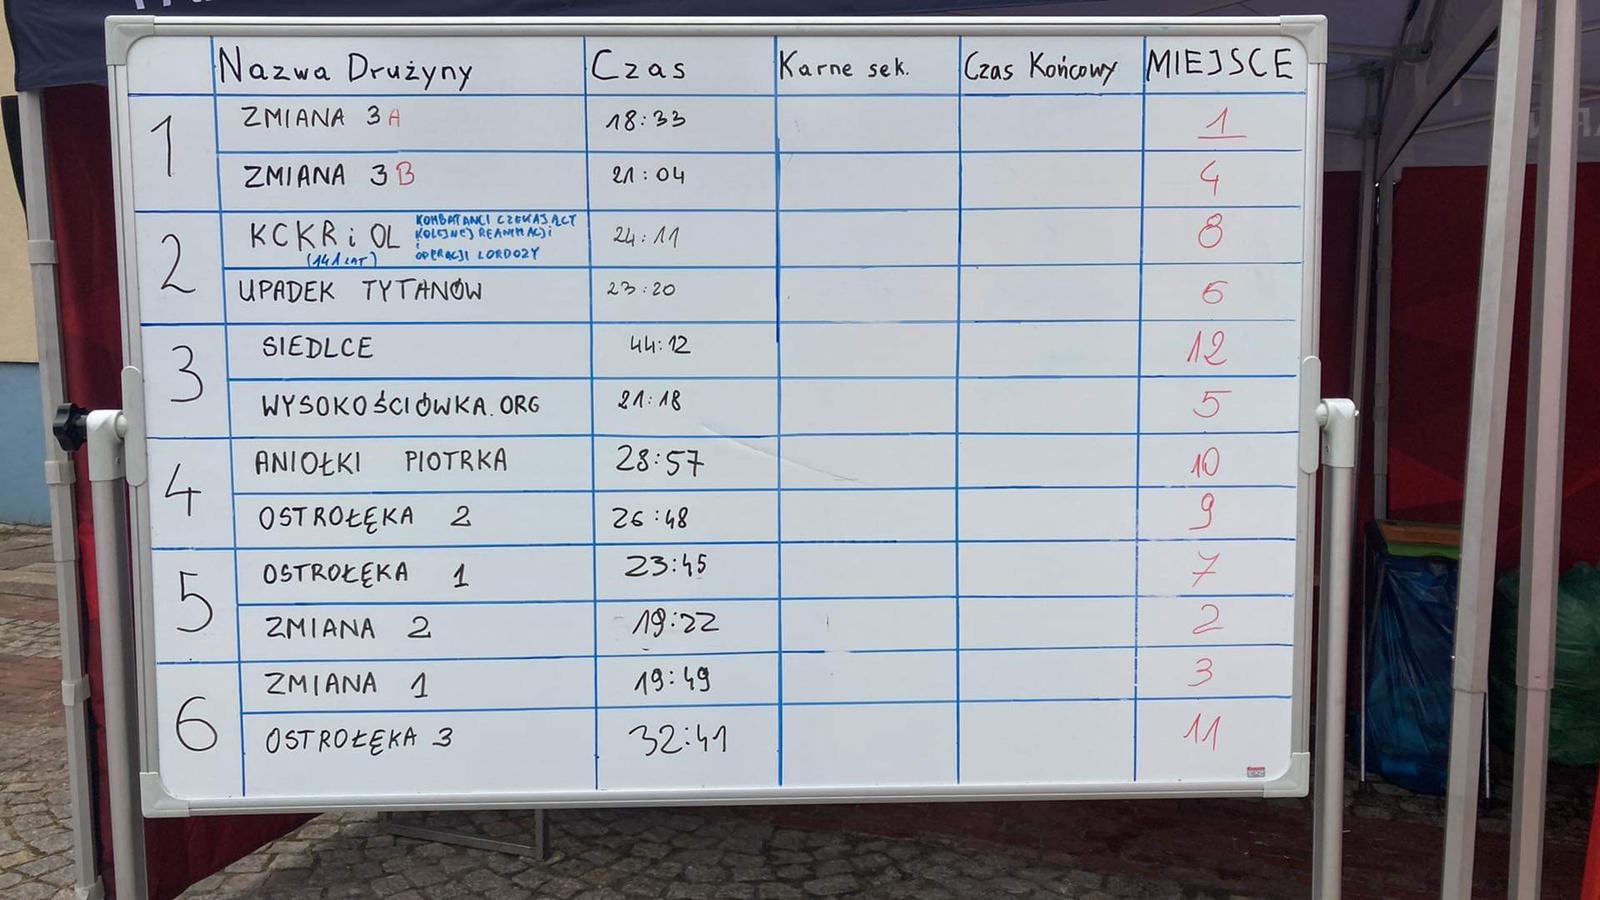 Nazwa Drużyny Czas Karne sek. Czas Końcowy MIEJSCE
1 ZMIANA 3A 18:33 1
ZMIANA 3B 21:04 4
2 KCKR i OL KOMBATANCI CZEKAJĄCY KOLEJNEJ REANIMACJI i OPERACJI LORDOZY (141 LAT) 24:11 8
UPADEK TYTANÓW 23:20 6
3 SIEDLCE 44:12 12
WYSOKOŚCIÓWKA.ORG 21:18 5
4 ANIOŁKI PIOTRKA 28:57 10
OSTROŁĘKA 2 26:48 9
5 OSTROŁĘKA 1 23:45 7
ZMIANA 2 19:22 2
6 ZMIANA 1 19:49 3
OSTROŁĘKA 3 32:41 11